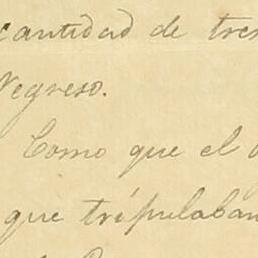 cantidad de tres
Negreso.
Como que el
que tripulaban